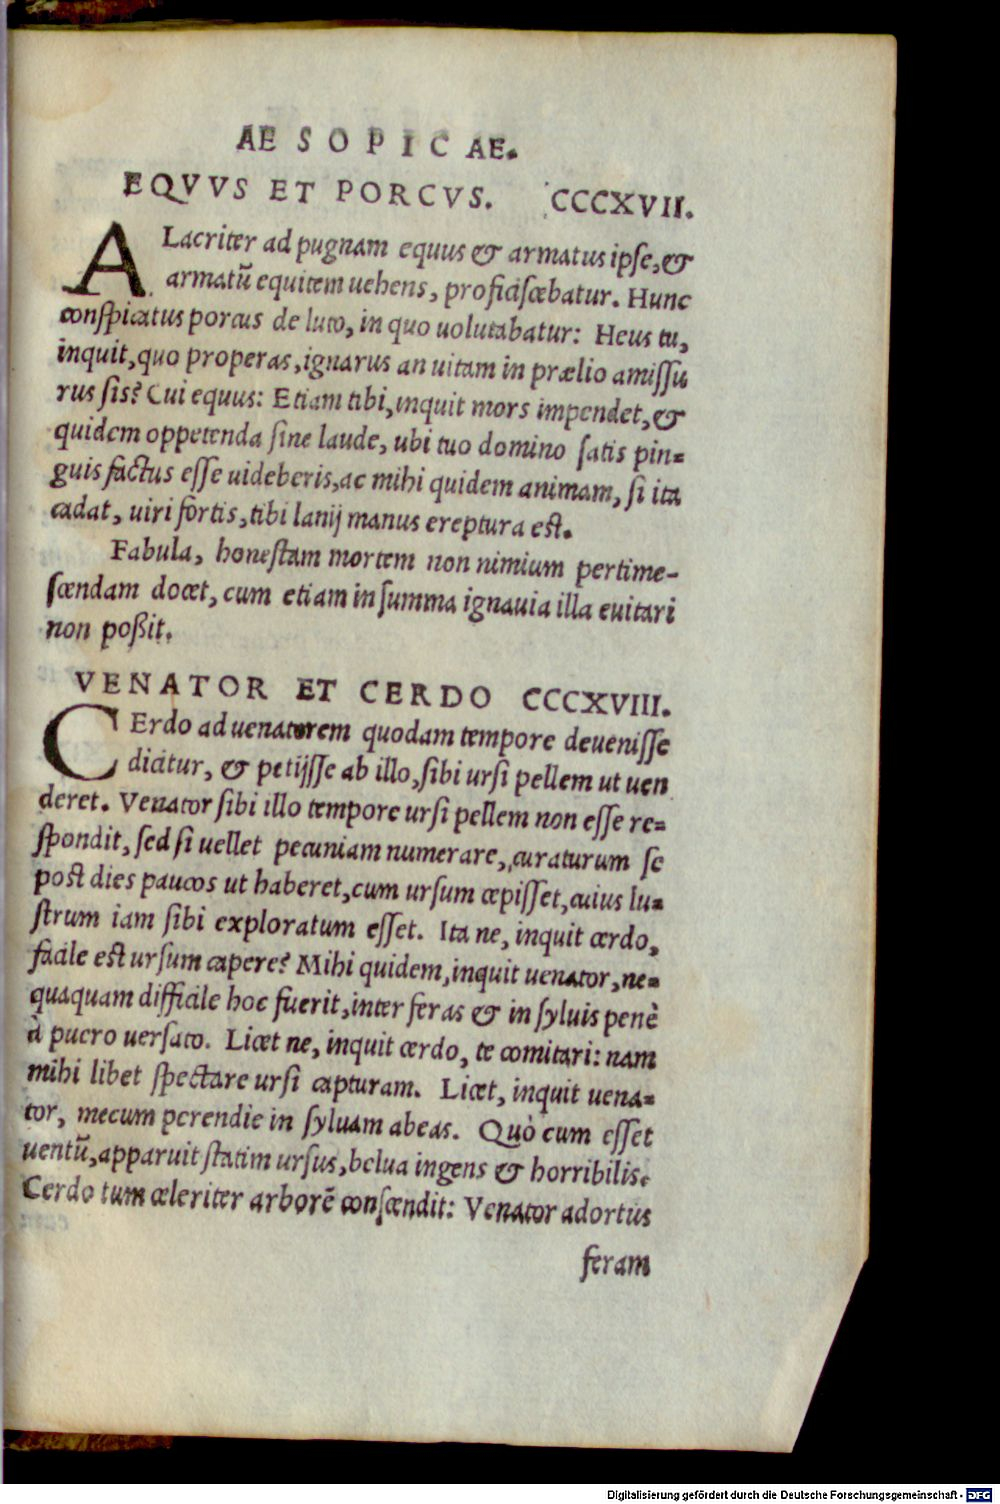 AE S O P I C AE.
EQVVS ET PORCVS. CCCXVII.
ALacriter ad pugnam equus & armatus ipse, &
armatū equitem uehens, proficiscebatur. Hunc
conspicatus porcus de luto, in quo uolutabatur: Heus tu,
inquit, quo properas, ignarus an uitam in prælio amissu
rus sis? Cui equus: Etiam tibi, inquit mors impendet, &
quidem oppetenda sine laude, ubi tuo domino satis pin=
guis factus esse uideberis, ac mihi quidem animam, si ita
cadat, uiri fortis, tibi lanij manus ereptura est.
Fabula, honestam mortem non nimium pertime-
scendam docet, cum etiam in summa ignauia illa euitari
non poßit.
VENATOR ET CERDO CCCXVIII.
CErdo ad uenatorem quodam tempore deuenisse
dicitur, & petijsse ab illo, sibi ursi pellem ut uen
deret. Venator sibi illo tempore ursi pellem non esse re=
spondit, sed si uellet pecuniam numerare, curaturum se
post dies paucos ut haberet, cum ursum cepisset, cuius lu=
strum iam sibi exploratum esset. Ita ne, inquit cerdo,
facile est ursum capere? Mihi quidem, inquit uenator, ne=
quaquam difficile hoc fuerit, inter feras & in syluis penè
à puero uersato. Licet ne, inquit cerdo, te comitari: nam
mihi libet spectare ursi capturam. Licet, inquit uena=
tor, mecum perendie in syluam abeas. Quò cum esset
uentū, apparuit statim ursus, belua ingens & horribilis.
Cerdo tum celeriter arborē conscendit: Venator adortus
feram
Digitalisierung gefördert durch die Deutsche Forschungsgemeinschaft - DFG